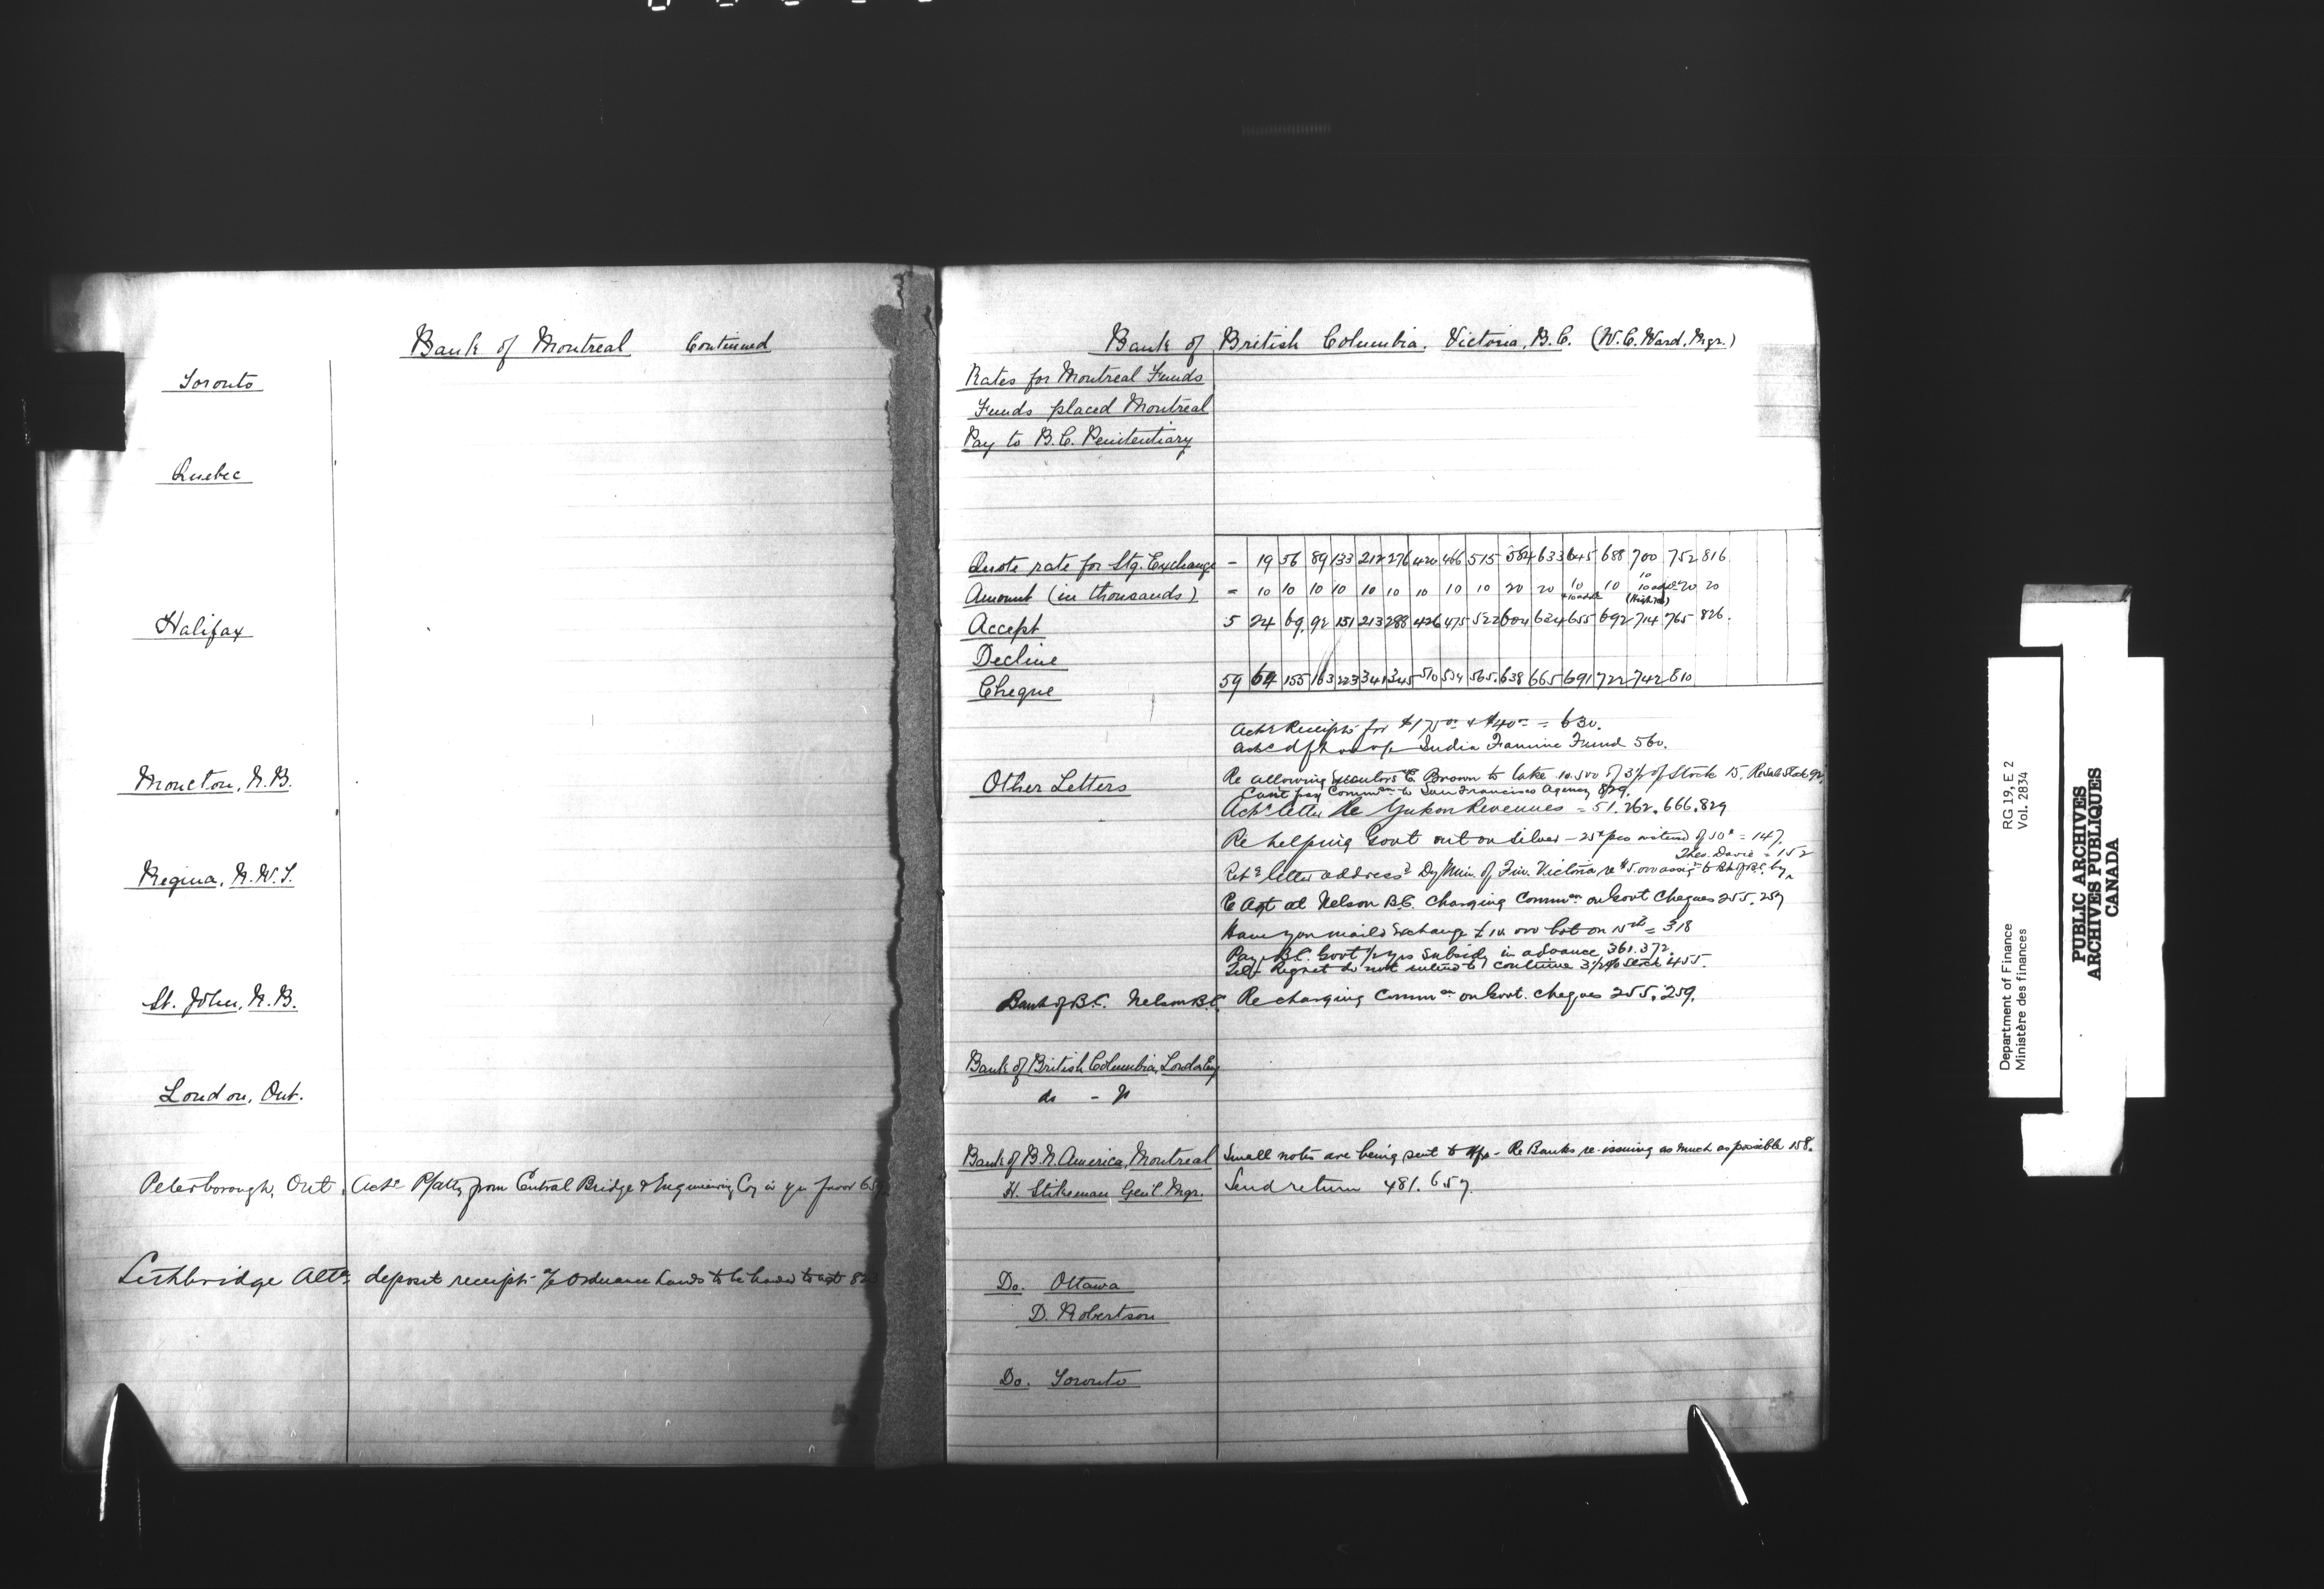 Bank of Montreal Continued
Toronto
Quebec
Halifax
Moncton, N.B.
Regina, N.W.T.
St. John, N.B.
London, Ont.
Peterborough, Ont. Ackg P/atty from Central Bridge & Engineering Coy in yr favor
Lethbridge Alta. deposit receipts a/c Ordnance Lands to be handed to agt
Bank of British Columbia. Victoria, B.C. (W.C. Ward, Mgr.)
Rates for Montreal Funds
Funds placed Montreal
Pay to B.C. Penitentiary
Quote rate for Stg. Exchange – 19 56 89 133 212 276 420 466 515 584 633 645 688 700 752 816
Amount (in thousands) = 10 10 10 10 10 10 10 10 10 20 20 10 10 10 20 20
Accept 5 24 69 92 151 213 288 426 475 522 604 634 655 692 714 765 826.
Decline
Cheque 59 64 155 163 223 341 345 510 534 565. 638 665 691 722 742 810
Ackg Receipts for $175 00 & $40 00 = 630.
India Famine Fund 560.
Other Letters Re allowing Executors E. Brown to take 10.500 of 3½% Stock 15.
Cant pay Commn to San Francisco Agency 829.
Ackg letter Re Yukon Revenues = 51. 262. 666. 829
Re helping Govt out on silver – 25c pcs instead of 50c = 147.
Theo. Davie = 152
Retg letter addressed Dy Min. of Fin. Victoria re $5.000 assigd to Bk of B.C. by
Re Agt at Nelson B.C. charging Commn on Govt Cheques 255. 259
Have you mailed Exchange £10 000 bot on 15th = 318
Pay B.C. Govt ½ yrs Subsidy in advance 361. 372.
Tel. Regret do not intend to continue 3½% Stock 455.
Bank of B.C. Nelson B.C. Re charging Commn on Govt. cheques 255. 259.
Bank of British Columbia, London Eng
do –
Bank of B.N. America, Montreal Small notes are being sent to – Re Banks re-issuing as much as possible 158.
H. Stikeman Gen'l. Mgr. Send return 481. 657.
Do. Ottawa
D. Robertson
Do. Toronto
Department of Finance
Ministère des finances
RG 19, E 2
Vol. 2834
PUBLIC ARCHIVES
ARCHIVES PUBLIQUES
CANADA